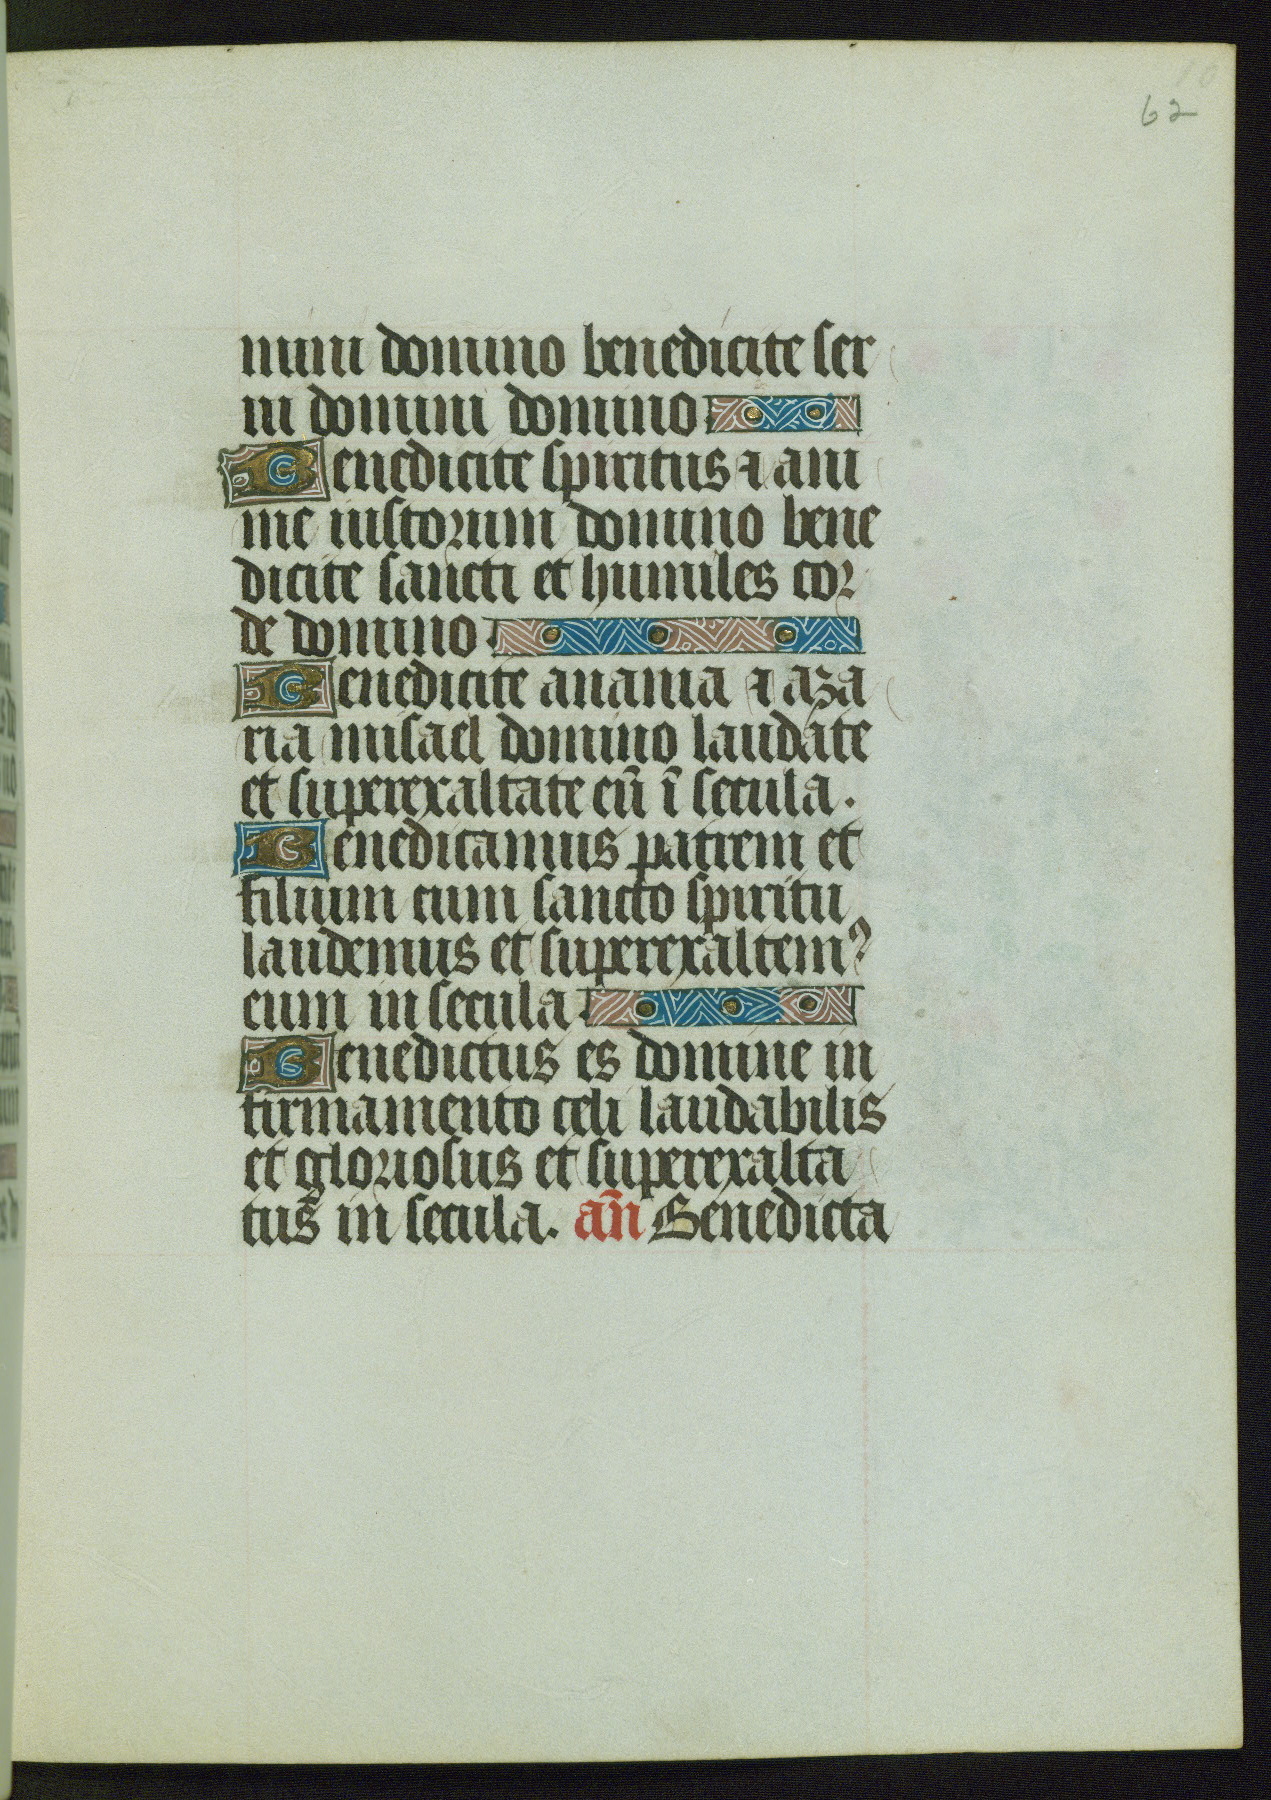 62
nini domino benedicite ser
ui domini domino
Benedicite spiritus ⁊ ani
me iustorum domino bene
dicite sancti et humiles cor
de domino
Benedicite anania ⁊ aza
ria misael domino laudate
et superexaltate eū ī secula.
Benedicamus patrem et
filium cum sancto spiritu
laudemus et superexaltem⁹
eum in secula
Benedictus es domine in
firmamento celi laudabilis
et gloriosus et superexalta
tus in secula. an̄ Benedicta